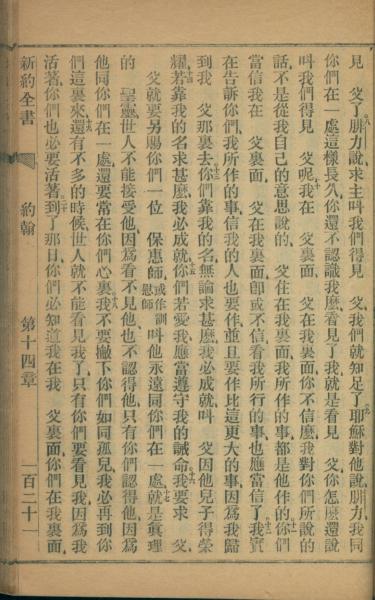 見 父了腓力說求主叫我們得見 父我們就知足了耶穌對他說腓力我同
你們在一處這樣長久你還不認識我麽看見了我就是看見 父你怎麽還說
叫我們得見 父呢我在 父裏面 父在我裏面你不信麽我對你們所說的
話不是從我自己的意思說的 父住在我裏面我所作的事都是他作的你們
當信我在 父裏面 父在我裏面卽或不信看我所行的事也應當信了我實
在告訴你們我所作的事信我的人也要作並且要作比這更大的事因爲我歸
到我 父那裏去你們靠我的名無論求甚麽我必成就叫 父因他兒子得榮
耀若靠我的名求甚麽我必成就你們若愛我應當遵守我的誡命我要求 父
父就要另賜你們一位 保惠師或作訓慰師叫他永遠同你們在一處就是眞理
的 聖靈世人不能接受他因爲看不見他也不認得他只有你們認得他因爲
他同你們在一處還要常在你們心裏我不要撇下你們如同孤兒我必再到你
們這裏來還有不多的時候世人就不能看見我了只有你們要看見我因爲我
活著你們也必要活著到了那日你們必知道我在我 父裏面你們在我裏面
新約全書 約翰 第十四章 一百二十一